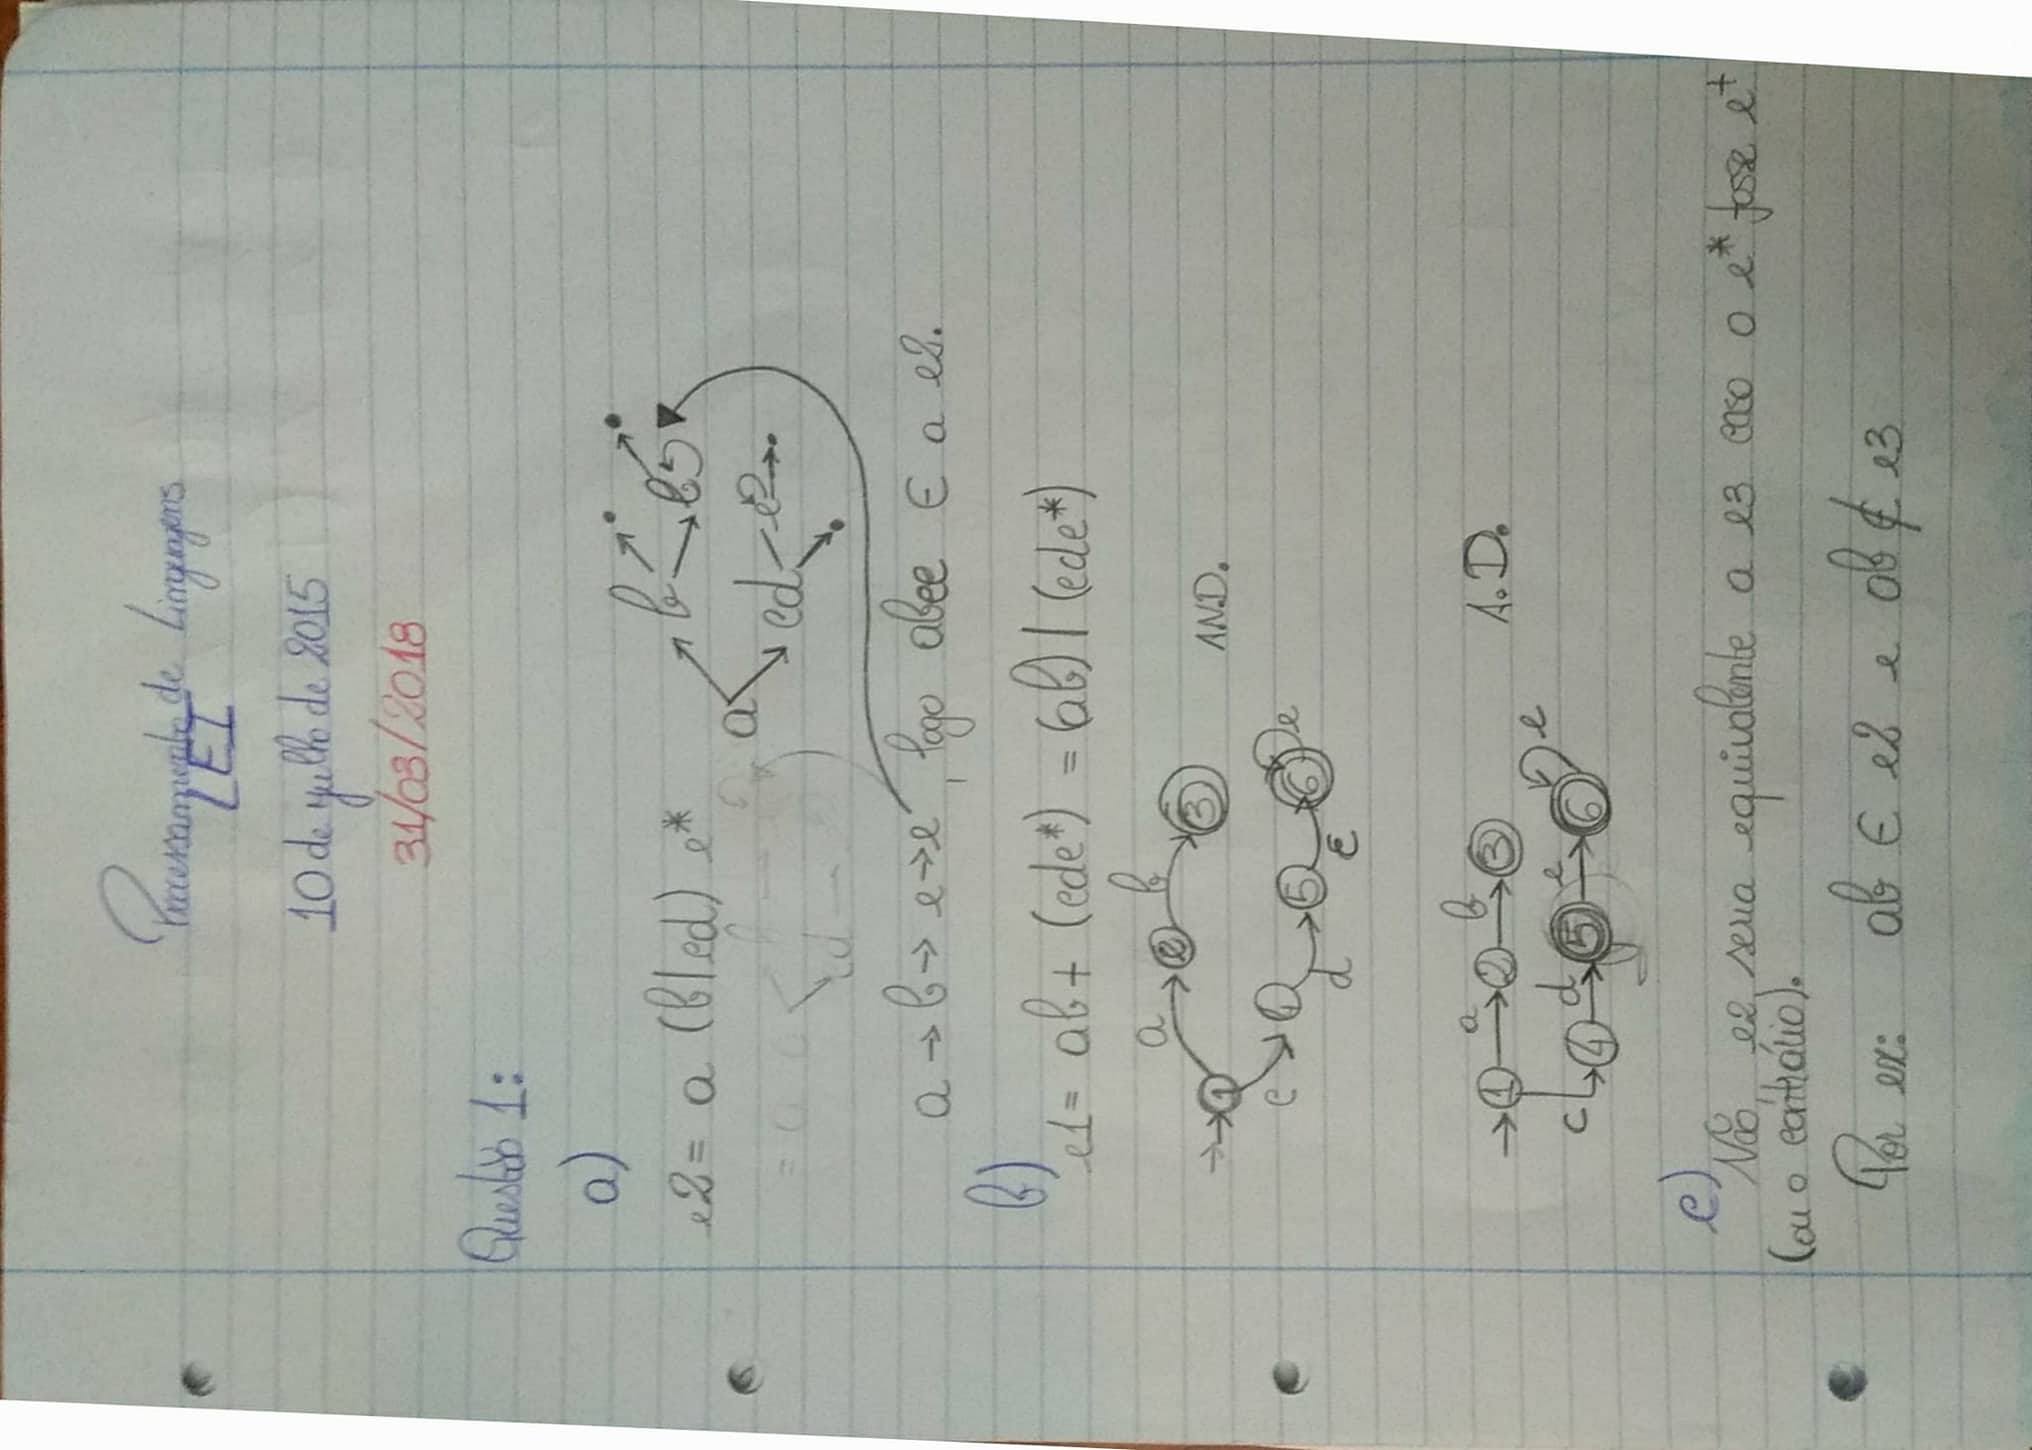 Processamento de Linguagens
LEI
10 de julho de 2015
31/03/2018
Questão 1:
a)
e2 = a (b|cd) e*
a b
cd
a → b → e → e, logo abee ∈ a e2.
b)
e1 = ab + (cde*) = (ab) | (cde*)
a b
1 2 3 A.N.D.
c 4 5 6 e
d ε
a b
1 2 3 A.D.
c 4 d 5 e 6 e
c)
Não, e2 seria equivalente a e3 caso o e* fosse e+
(ou o contrário).
Por ex: ab ∈ e2 e ab ∉ e3